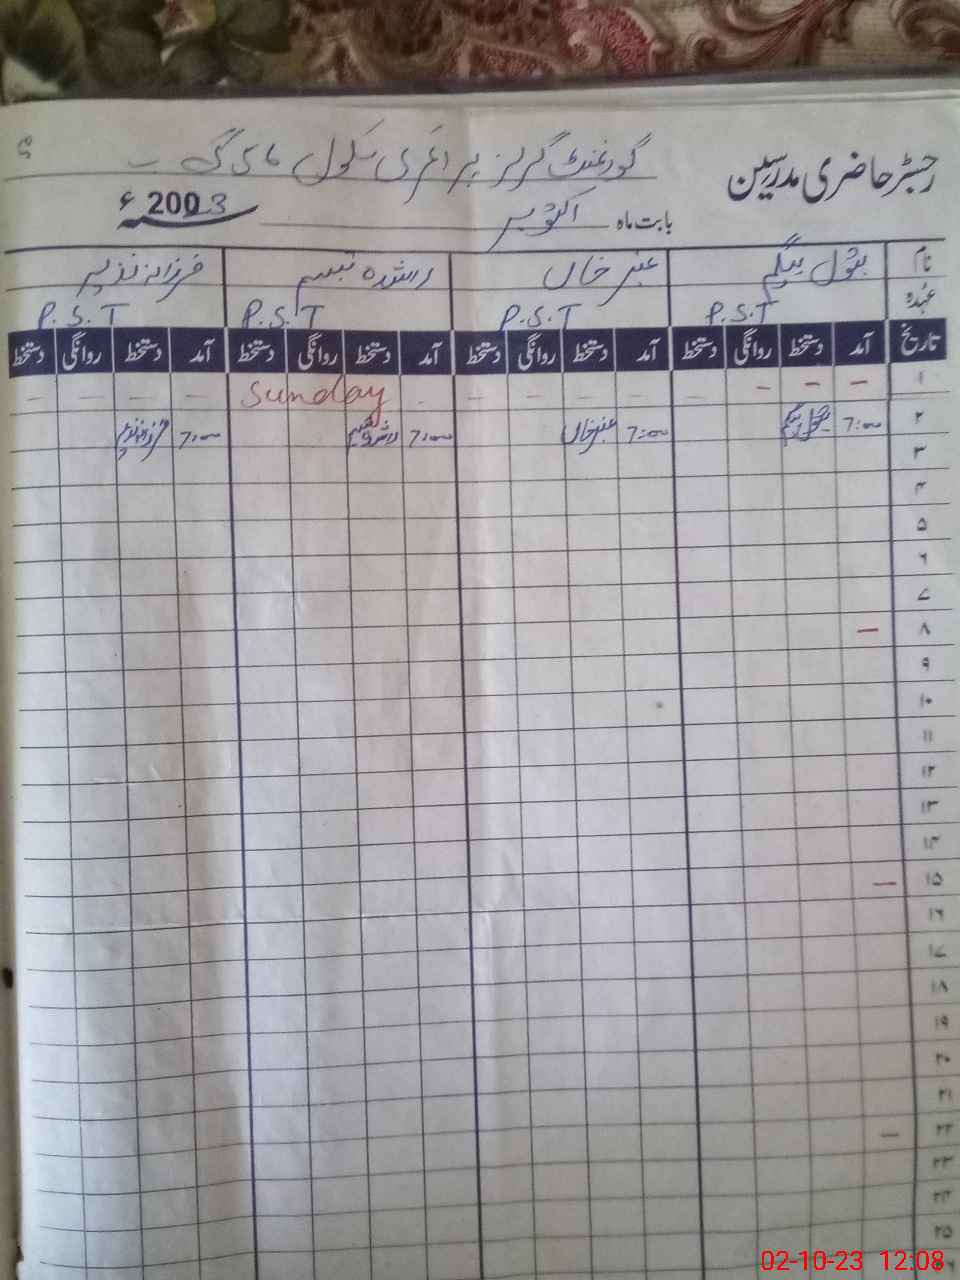 رجسٹر حاضری مدرسین گورنمنٹ گرلز پرائمری سکول
بابت ماہ اکتوبر 2003ء
نام بتول بیگم عنبر خان راشدہ تبسم فرزانہ نذیر
عہدہ P.S.T P.S.T P.S.T P.S.T
تاریخ آمد دستخط روانگی دستخط آمد دستخط روانگی دستخط آمد دستخط روانگی دستخط آمد دستخط روانگی دستخط
۱ – – – – – Sunday – – – –
۲ 7:00 بتول بیگم 7:00 عنبر خان 7:00 7:00 فرزانہ نذیر
۳
۴
۵
۶
۷
۸ –
۹
۱۰
۱۱
۱۲
۱۳
۱۴
۱۵ –
۱۶
۱۷
۱۸
۱۹
۲۰
۲۱
۲۲ –
۲۳
۲۴
۲۵
02-10-23 12:08